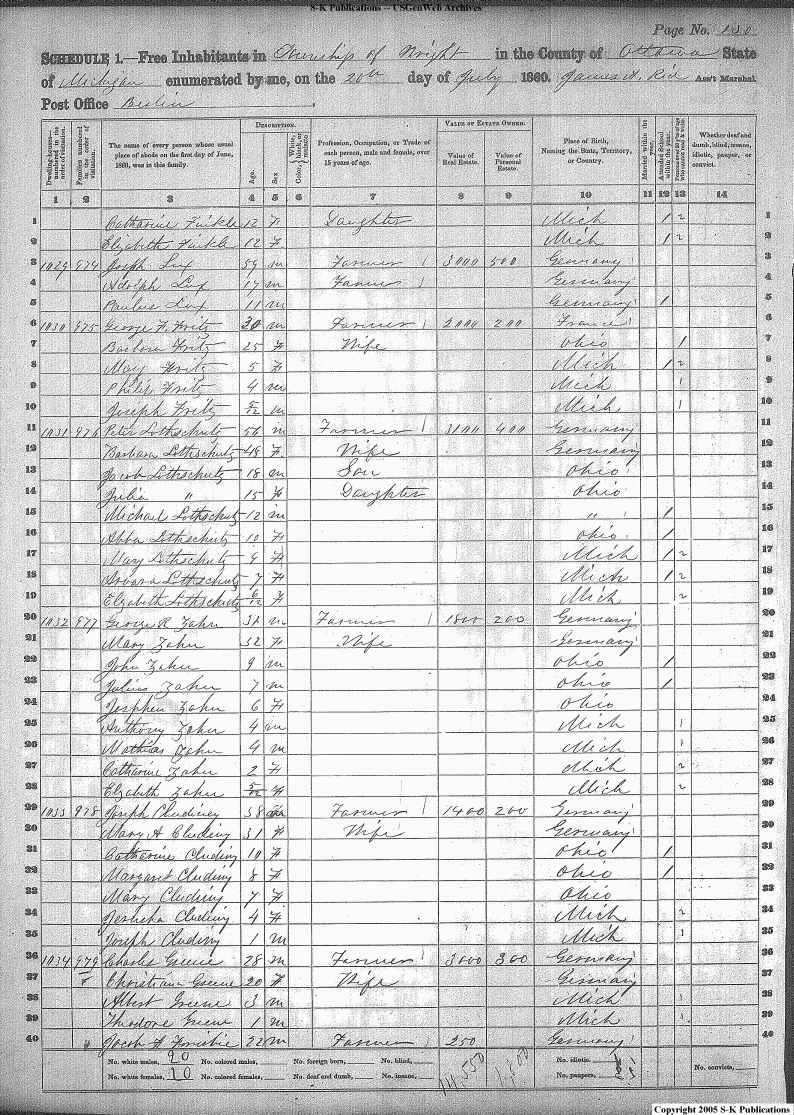 S-K Publications -- USGenWeb Archives
Page No. 130
SCHEDULE 1.—Free Inhabitants in Township of Wright in the County of Ottawa State
of Michigan enumerated by me, on the 20th day of July 1860. James A. Rid Ass't Marshal
Post Office Berlin
Dwelling-houses numbered in the order of visitation. Families numbered in the order of visitation. The name of every person whose usual place of abode on the first day of June, 1860, was in this family. DESCRIPTION. Age. Sex Color, White, black, or mulatto Profession, Occupation, or Trade of each person, male and female, over 15 years of age. VALUE OF ESTATE OWNED. Value of Real Estate. Value of Personal Estate. Place of Birth, Naming the State, Territory, or Country. Married within the year. Attended School within the year. Whether deaf and dumb, blind, insane, idiotic, pauper, or convict.
1 2 3 4 5 6 7 8 9 10 11 12 13 14
1 Catharine Finkle 12 F Daughter Mich 1 2 1
2 Elizabeth Finkle 12 F Mich 1 2 2
3 1029 974 Joseph Lux 59 m Farmer 3000 500 Germany 3
4 Adolph Lux 17 m Farmer Germany 4
5 Paulus Lux 11 m Germany 1 5
6 1030 975 George F. Fritz 30 m Farmer 2000 200 France 6
7 Barbara Fritz 25 F Wife Ohio 1 7
8 May Fritz 5 F Mich 1 2 8
9 Philip Fritz 4 m Mich 1 9
10 Joseph Fritz 5/12 m Mich 1 10
11 1031 976 Peter Lothschutz 56 m Farmer 3100 400 Germany 11
12 Barbara Lothschutz 48 F Wife Germany 12
13 Jacob Lothschutz 18 m Son Ohio 13
14 Julia " 15 F Daughter Ohio 14
15 Michael Lothschutz 12 m " 1 15
16 Abba Lothschutz 10 F Ohio 1 16
17 Mary Lothschutz 9 F Mich 1 2 17
18 Barbara Lothschutz 7 F Mich 1 2 18
19 Elizabeth Lothschutz 6/12 F Mich 2 19
20 1032 977 George R Zahn 37 m Farmer 1800 200 Germany 20
21 Mary Zahn 32 F Wife Germany 21
22 John Zahn 9 m Ohio 1 22
23 Julius Zahn 7 m Ohio 1 23
24 Josephen Zahn 6 F Ohio 24
25 Anthony Zahn 4 m Mich 1 25
26 Mathias Zahn 4 m Mich 1 26
27 Catharine Zahn 2 F Mich 2 27
28 Elizabeth Zahn 5/12 F Mich 2 28
29 1033 978 Joseph Cludiney 38 m Farmer 1400 200 Germany 29
30 Mary A Cluding 31 F Wife Germany 30
31 Catharine Cluding 10 F Ohio 1 31
32 Margaret Cluding 8 F Ohio 1 32
33 Mary Cluding 7 F Ohio 33
34 Cluding 4 F Mich 2 34
35 Joseph Cluding 1 m Mich 1 35
36 1034 979 Charles Greene 28 m Farmer 3000 300 Germany 36
37 Christiana Greene 20 F Wife Germany 37
38 Albert Greene 3 m Mich 1 38
39 Theodore Greene 1 m Mich 1 39
40 Jacob 22 m Farmer 250 Germany 40
No. white males, 20 No. colored males, No. foreign born, No. blind, 14,550 1,800 No. idiotic, No. convicts,
No. white females, 20 No. colored females, No. deaf and dumb, No. insane, No. paupers,
Copyright 2005 S-K Publications